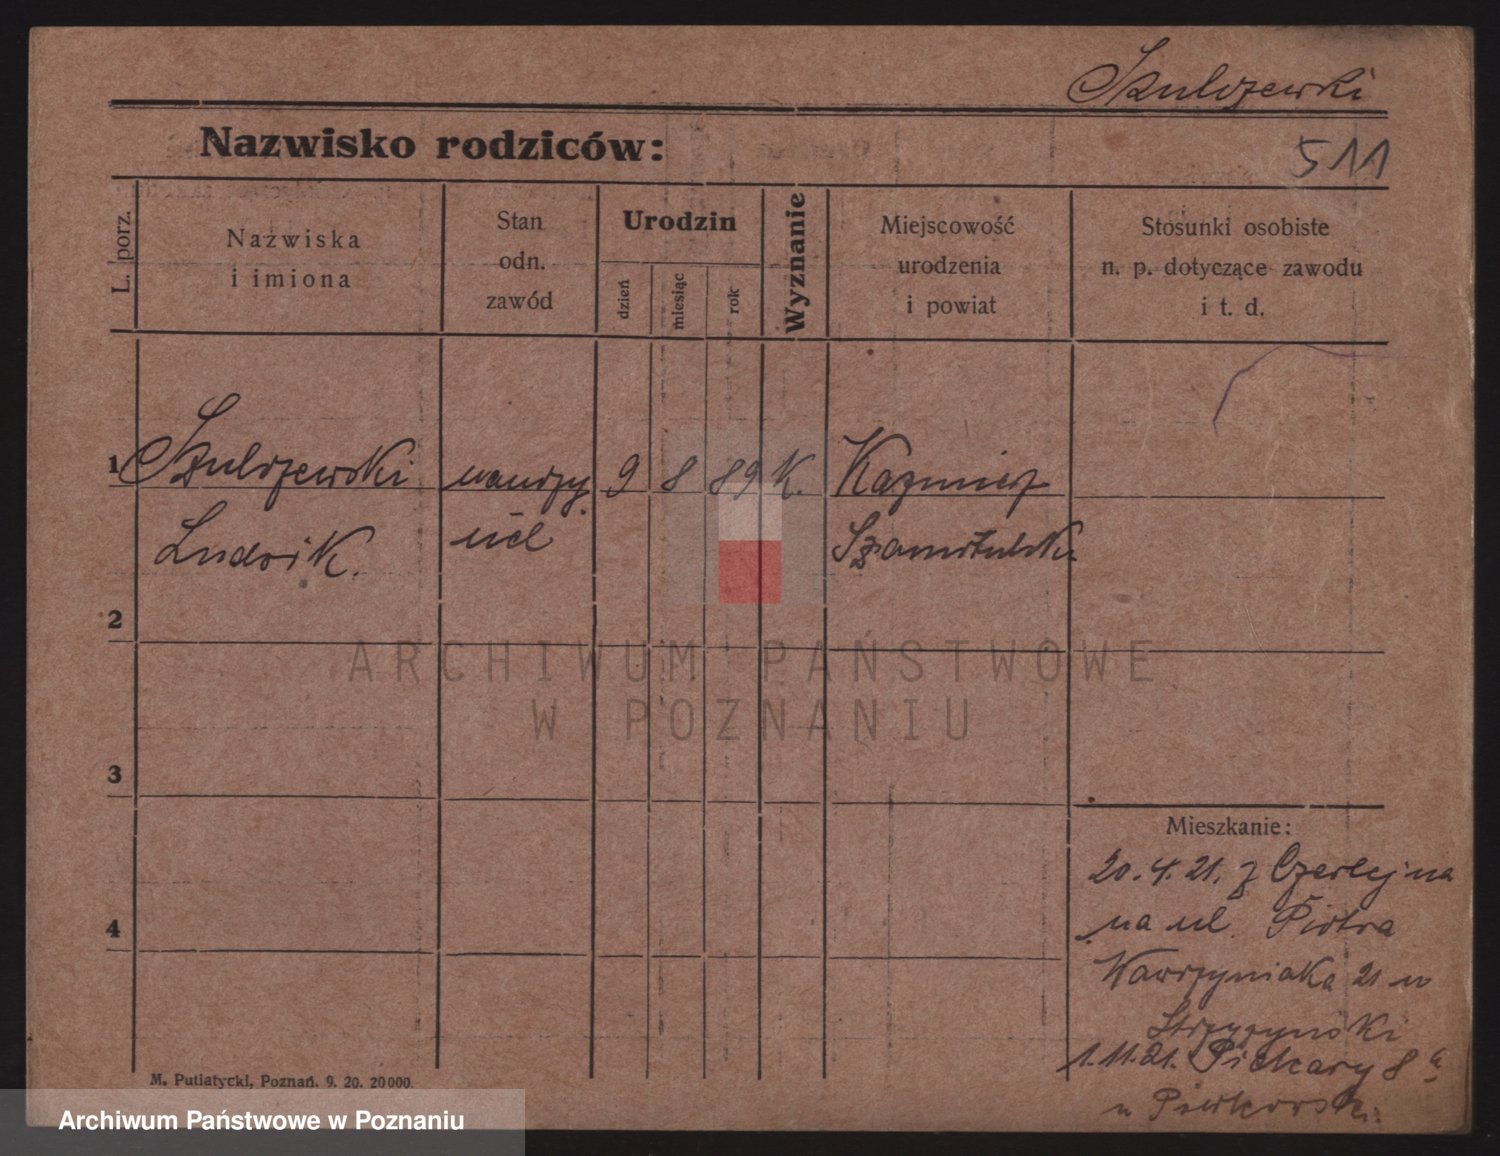 Szulczewski
Nazwisko rodziców:
511
L. porz.
Nazwiska
i imiona
Stan
odn.
zawód
Urodzin
dzień
miesiąc
rok
Wyznanie
Miejscowość
urodzenia
i powiat
Stosunki osobiste
n. p. dotyczące zawodu
i t. d.
1 Szulczewski nauczy. 9 8 89 K. Kazmierz
Ludwik. ciel Szamotulski
2
3
4
Mieszkanie:
20.4.21. z Czerlejna
na ul. Piotra
Wawrzyniaka 21 u
1.11.21. Piekary 8
u
M. Putiatycki, Poznań. 9. 20. 20000.
ARCHIWUM PAŃSTWOWE
W POZNANIU
Archiwum Państwowe w Poznaniu